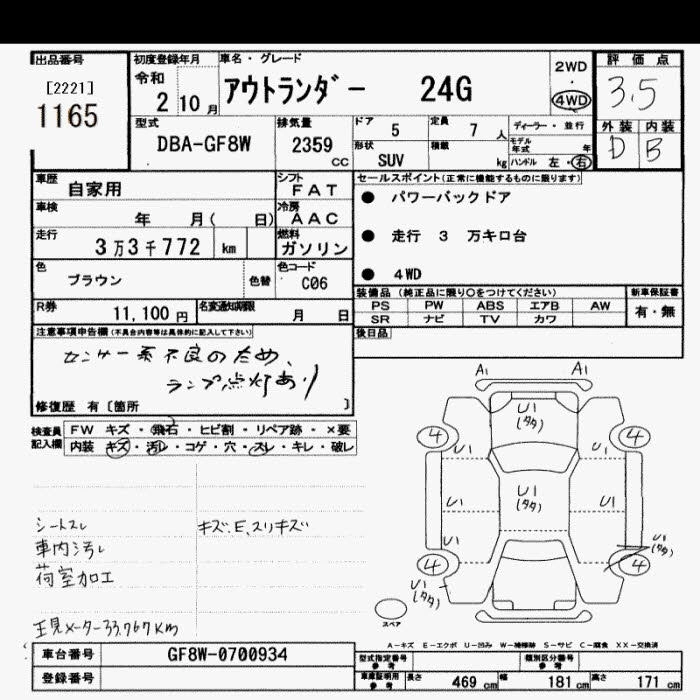 出品番号
[2221]
1165
初度登録年月
令和
2年10月
車名・グレード
アウトランダー 24G
2WD
・
4WD
評価点
3.5
外装 内装
D B
型式
DBA-GF8W
排気量
2359
cc
ドア
5
定員
7 人
ディーラー・並行
形状
SUV
積載
kg
モデル年式 年
ハンドル 左・右
車歴
自家用
シフト
FAT
車検
年 月( 日)
冷房
AAC
走行
3万3千772 km
燃料
ガソリン
色
ブラウン
色替
色コード
C06
R券
11,100円
名変通知期限
月 日
セールスポイント(正常に機能するものに限ります)
● パワーバックドア
● 走行 3 万キロ台
● 4WD
装備品(純正品に限り○をつけてください)
PS PW ABS エアB AW
SR ナビ TV カワ
新車保証書
有・無
後日品
注意事項申告欄(不具合内容等は具体的に記入して下さい)
センサー系不良のため、
ランプ点灯あり
修復歴 有〔箇所 〕
検査員記入欄
FW キズ・飛石・ヒビ割・リペア跡・×要
内装 キズ・汚レ・コゲ・穴・スレ・キレ・破レ
シートスレ
車内汚レ
荷室加工
キズ、E、スリキズ
現メーター33,767Km
A1 A1
U1
(タタ)
4 4
U1 U1
U1 U1
(タタ)
U1
U1
U1
(タタ)
4 4
U1
(タタ)
スペア
A-キズ E-エクボ U-凹み W-補修跡 S-サビ C-腐食 XX-交換済
車台番号
GF8W-0700934
登録番号
型式指定番号
参考
類別区分番号
参考
車庫証明用
参考
長さ 469 cm
幅 181 cm
高さ 171 cm